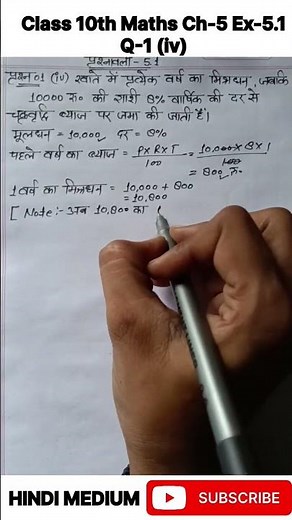 Class 10th Maths Ch-5 Ex-5.1
Q-1 (iv)
प्रश्नावली - 5.1
प्रश्न 01 (iv) खाते में प्रत्येक वर्ष का मिश्रधन, जबकि
10000 रु० की राशी 8% वार्षिक की दर से
चक्रवृद्धि ब्याज पर जमा की जाती है।
मूलधन = 10,000, दर = 8%
पहले वर्ष का ब्याज = P×R×T/100 = 10,000×8×1/100
= 800 रु०
1 वर्ष का मिश्रधन = 10,000 + 800
= 10,800
[ Note:- अब 10,800 का
HINDI MEDIUM SUBSCRIBE